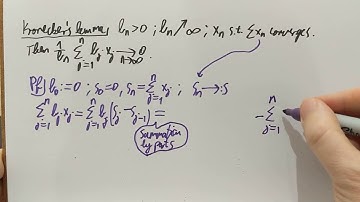 Kronecker's Lemma: bₙ>0 ; bₙ↗∞ ; xₙ s.t. Σxₙ converges.
Then 1/bₙ Σ_{j=1}^{n} bⱼ xⱼ →_{n→∞} 0
Pf/ b₀:=0 ; s₀=0, sₙ=Σ_{j=1}^{n} xⱼ ; sₙ→:s
Σ_{j=1}^{n} bⱼ xⱼ = Σ_{j=1}^{n} bⱼ(sⱼ-sⱼ₋₁) = -Σ_{j=1}^{n}
Summation
by parts